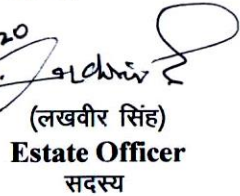 20
(लखवीर सिंह)
Estate Officer
सदस्य